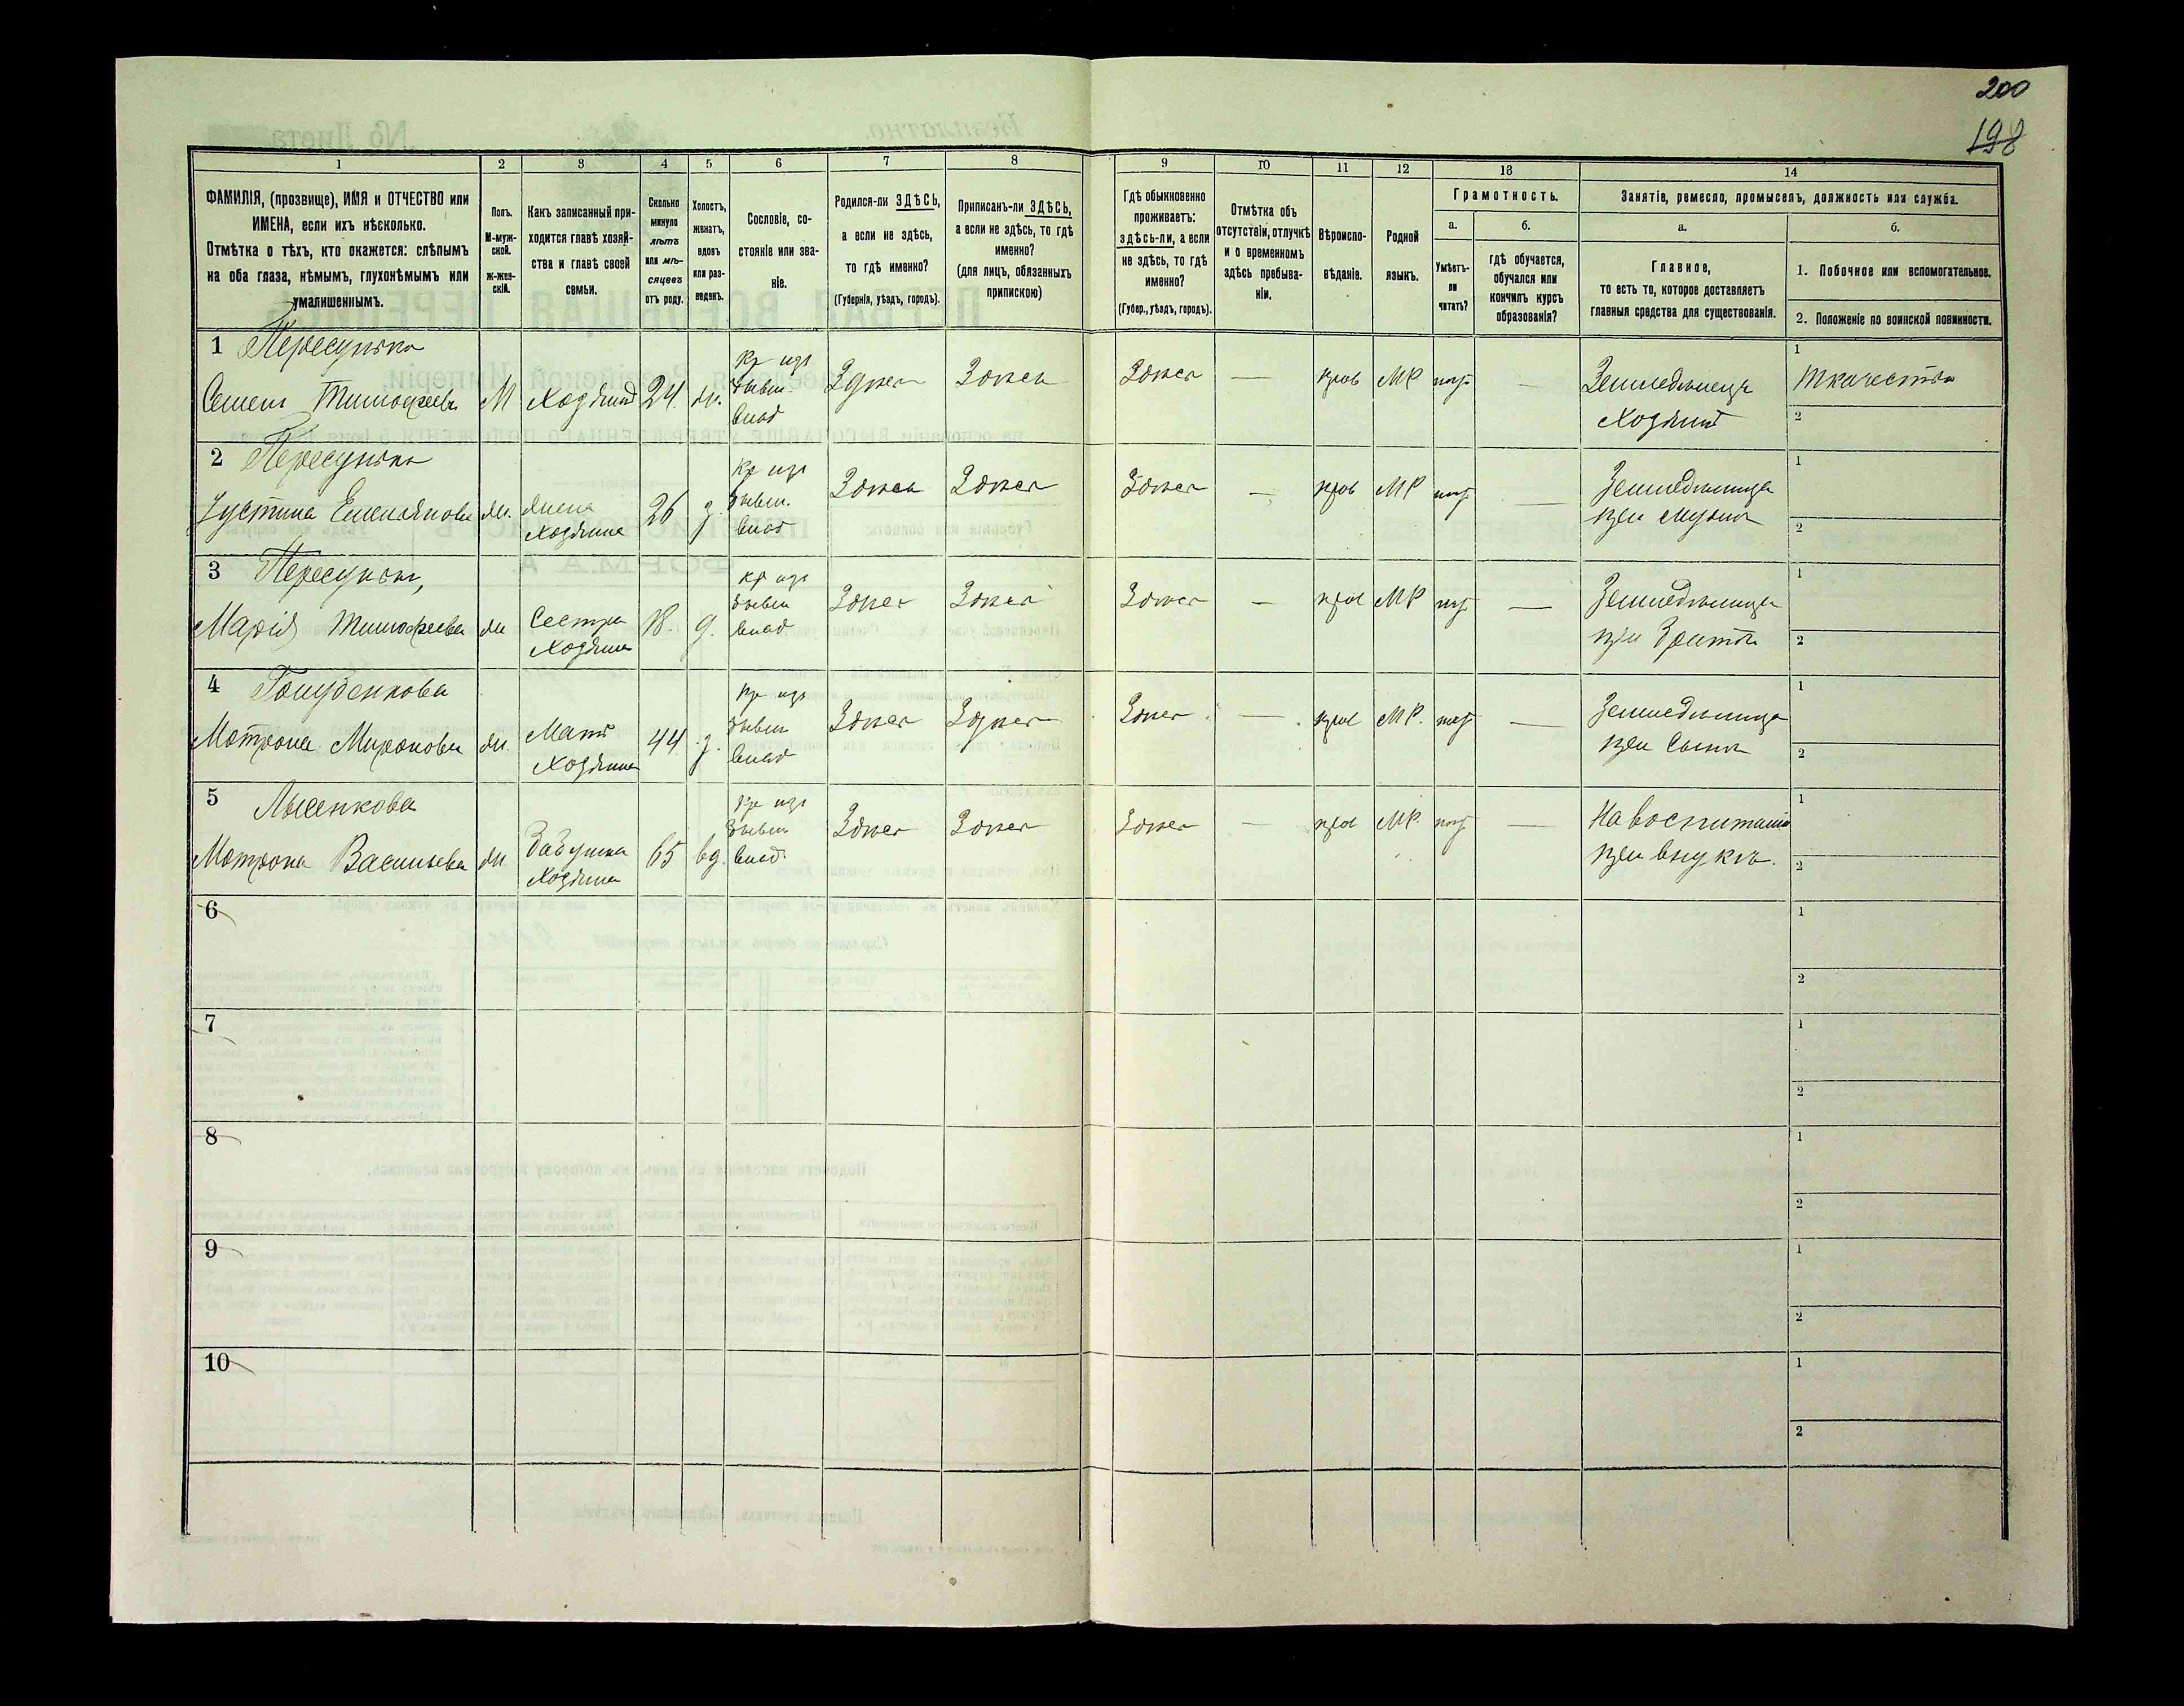 200
198
1
2
3
4
5
6
7
8
9
10
11
12
13
14
ФАМИЛІЯ, (прозвище), ИМЯ и ОТЧЕСТВО или
ИМЕНА, если ихъ нѣсколько.
Отмѣтка о тѣхъ, кто окажется: слѣпымъ
на оба глаза, нѣмымъ, глухонѣмымъ или
умалишеннымъ.
Полъ.
М-муж-
ской.
ж-жен-
скій.
Какъ записанный при-
ходится главѣ хозяй-
ства и главѣ своей
семьи.
Сколько
минуло
лѣтъ
или мѣ-
сяцевъ
отъ роду.
Холостъ,
женатъ,
вдовъ
или раз-
веденъ.
Сословіе, со-
стояніе или зва-
ніе.
Родился-ли ЗДѢСЬ,
а если не здѣсь,
то гдѣ именно?
(Губернія, уѣздъ, городъ).
Приписанъ-ли ЗДѢСЬ,
а если не здѣсь, то гдѣ
именно?
(для лицъ, обязанныхъ
припискою)
Гдѣ обыкновенно
проживаетъ:
здѣсь-ли, а если
не здѣсь, то гдѣ
именно?
(Губер., уѣздъ, городъ).
Отмѣтка объ
отсутствіи, отлучкѣ
и о временномъ
здѣсь пребыва-
ніи.
Вѣроиспо-
вѣданіе.
Родной
языкъ.
Грамотность.
а.
Умѣетъ-
ли
читать?
б.
гдѣ обучается,
обучался или
кончилъ курсъ
образованія?
Занятіе, ремесло, промыселъ, должность или служба.
а.
Главное,
то есть то, которое доставляетъ
главныя средства для существованія.
б.
1. Побочное или вспомогательное.
2. Положеніе по воинской повинности.
1 Пересунька
Семенъ Тимофеевъ М Хозяинъ 24 ж. Кр изъ бывш. влад Здѣсь Здѣсь Здѣсь — прав МР нѣтъ — Земледѣлецъ Хозяинъ 1 Ткачество 2
2 Пересунька
Устина Емельянова ж. жена Хозяина 26 з. Кр изъ бывш. влад Здѣсь Здѣсь Здѣсь — прав МР нѣтъ — Земледѣлица при мужѣ 1 2
3 Пересунька
Марія Тимофеева ж Сестра Хозяина 18. д. кр изъ бывш влад Здѣсь Здѣсь Здѣсь — прав МР нѣтъ — Земледѣлица при братѣ 1 2
4 Голубенкова
Мотрона Миронова ж. Мать Хозяина 44 з. Кр изъ бывш влад Здѣсь Здѣсь Здѣсь — прав МР. нѣтъ — Земледѣлица при сынѣ 1 2
5 Лысенкова
Мотрона Васильева ж. Бабушка Хозяина 65 вд. Кр изъ бывш влад Здѣсь Здѣсь Здѣсь — прав МР. нѣтъ — На воспитаніи при внукѣ. 1 2
6 1 2
7 1 2
8 1 2
9 1 2
10 1 2